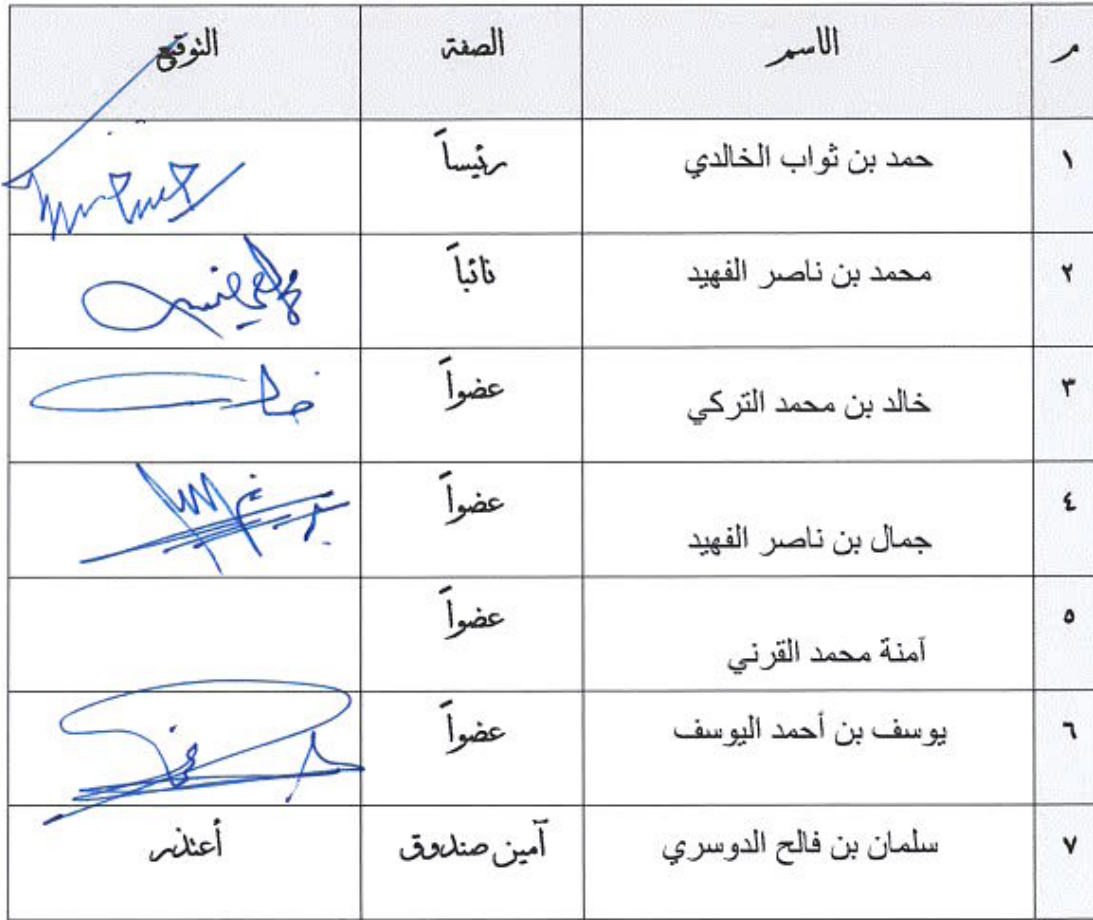 م الاسم الصفة التوقيع
١ حمد بن ثواب الخالدي رئيساً
٢ محمد بن ناصر الفهيد نائباً
٣ خالد بن محمد التركي عضواً
٤ جمال بن ناصر الفهيد عضواً
٥ آمنة محمد القرني عضواً
٦ يوسف بن أحمد اليوسف عضواً
٧ سلمان بن فالح الدوسري آمين صندوق أعتذر